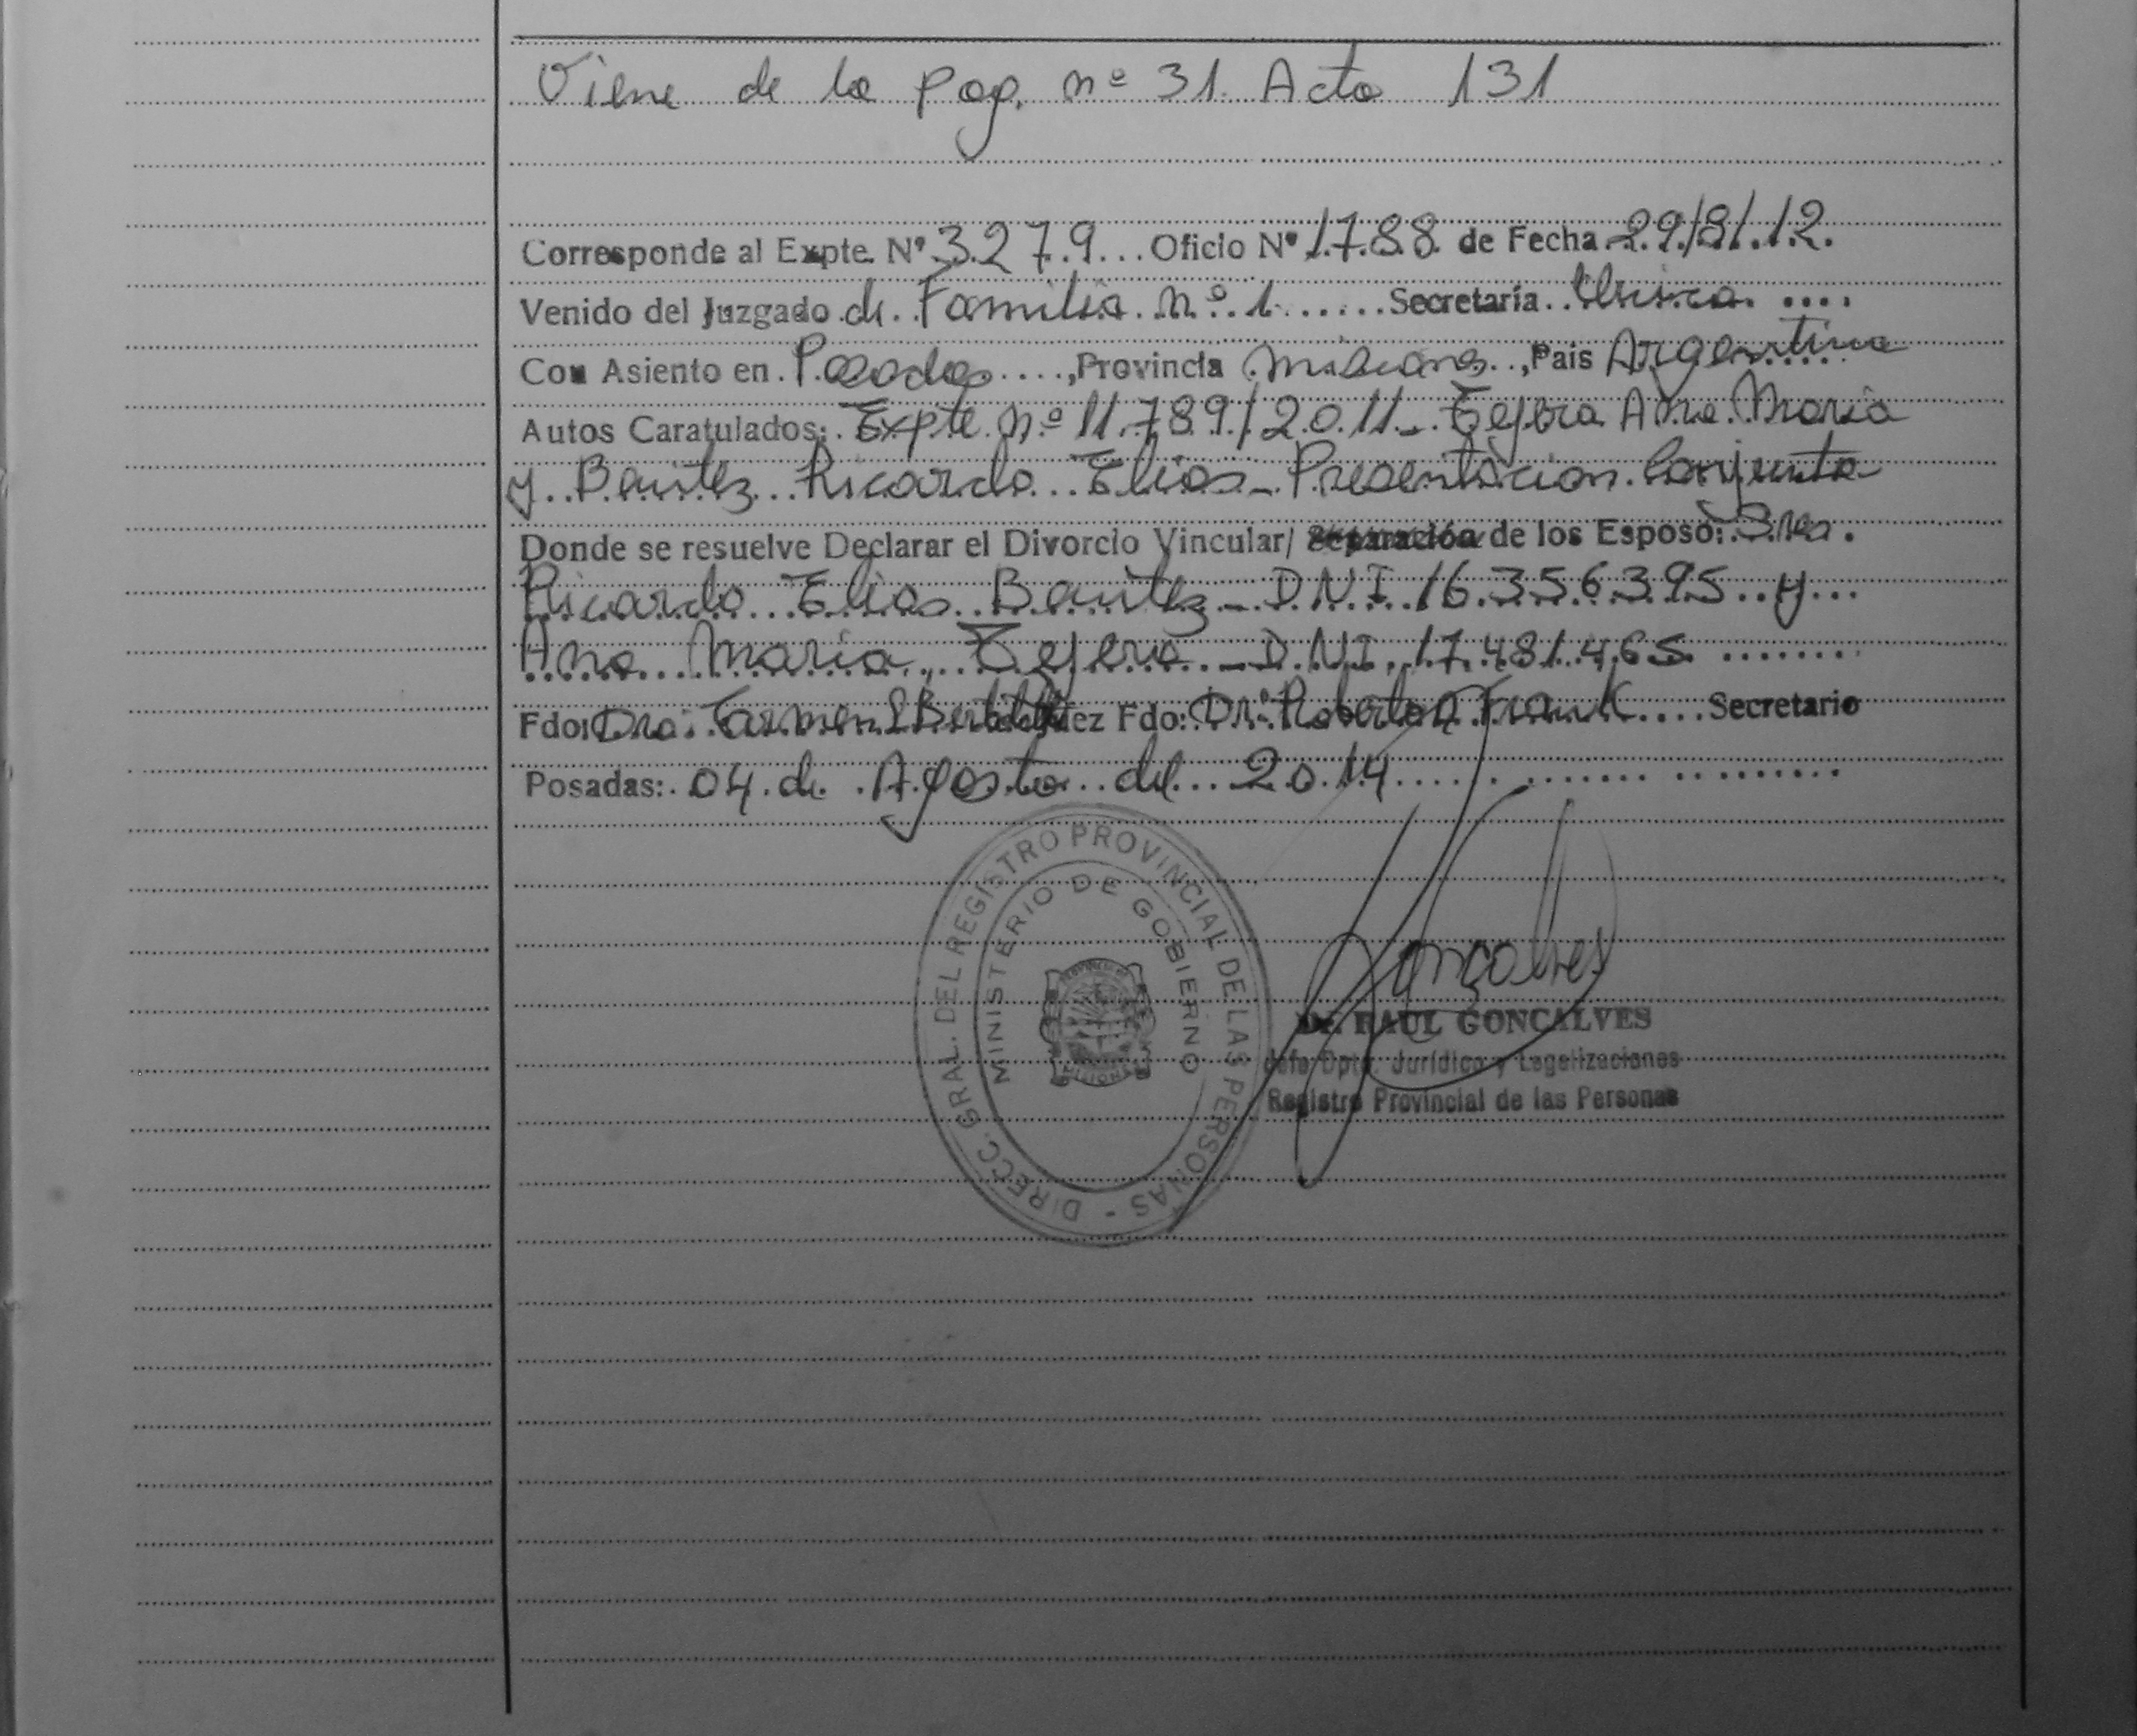 Viene de la pag. nº 31. Acta 131
Corresponde al Expte. Nº 3279 Oficio Nº 1788 de Fecha 29/8/12.
Venido del Juzgado de Familia nº 1 Secretaría Unica
Con Asiento en Posadas, Provincia Misiones, Pais Argentina
Autos Caratulados: Expte nº 11.789/2011 - Tejera Ana Maria
y Benitez Ricardo Elias - Presentacion Conjunta
Donde se resuelve Declarar el Divorcio Vincular/ Separación de los Esposo: Sres.
Ricardo Elias Benitez - D.N.I. 16.356.395 y
Ana Maria Tejera - D.N.I. 17.481.465
Fdo: Dra. Carmen Juez Fdo: Dr. Roberto A. Frank Secretario
Posadas: 04 de Agosto del 2014
DIRECC. GRAL. DEL REGISTRO PROVINCIAL DE LAS PERSONAS -
MINISTERIO DE GOBIERNO
MISIONES
Gonçalves
Dr. RAUL GONCALVES
Jefe Dpto. Jurídico y Legalizaciones
Registro Provincial de las Personas